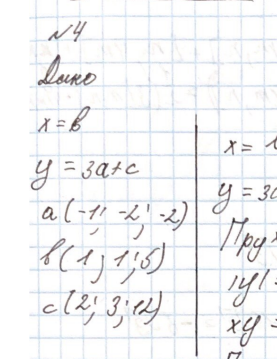 №4
Дано
x = b
y = 3a + c
a (-1; -2; -2)
b (1; 1; 5)
c (2; 3; 12)
x =
y = 3
Пр
|y| =
xy =